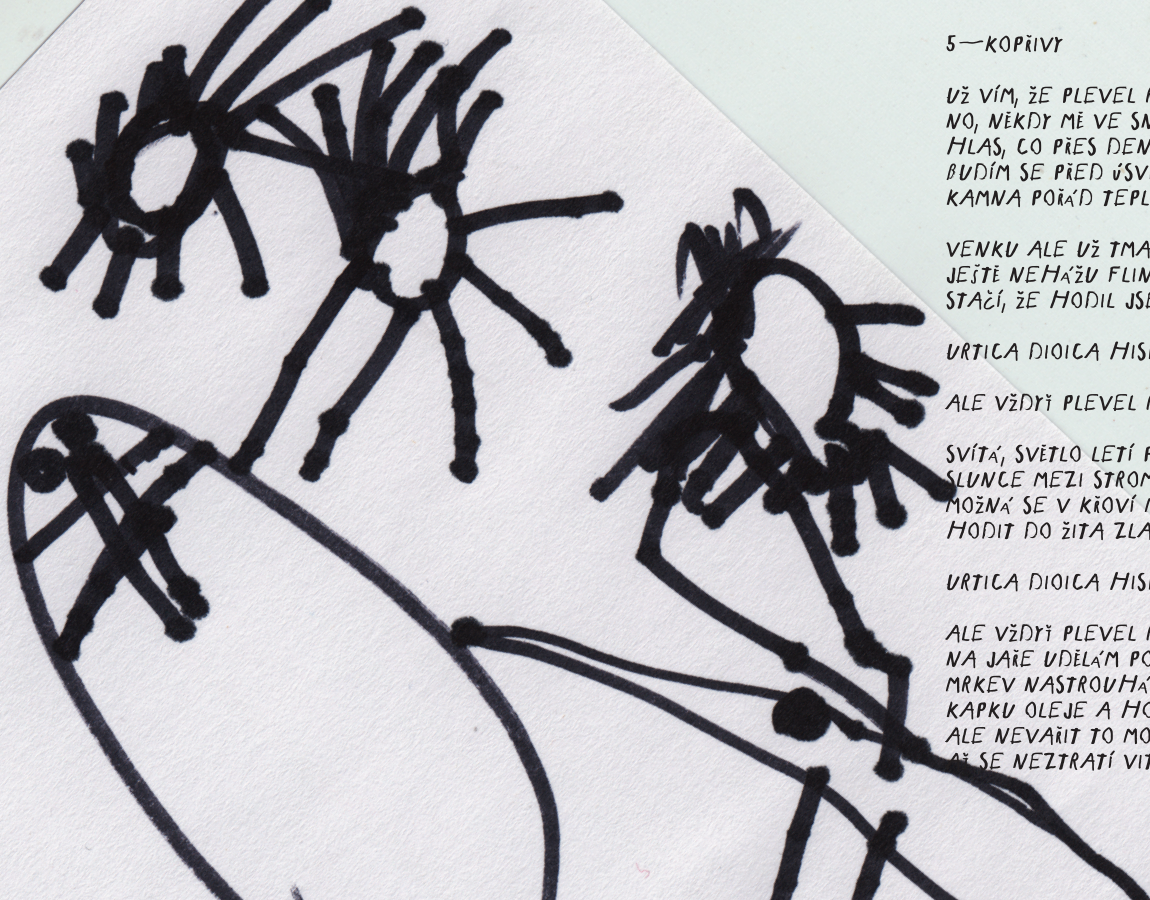 5—KOPŘIVY
UŽ VÍM, ŽE PLEVEL
NO, NĚKDY MĚ VE
HLAS, CO PŘES DEN
BUDÍM SE PŘED
KAMNA POŘÁD
VENKU ALE UŽ
JEŠTĚ NEHÁŽU
STAČÍ, ŽE HODIL
URTICA DIOICA
ALE VŽDYŤ PLEVEL
SVÍTÁ, SVĚTLO LETÍ
SLUNCE MEZI
MOŽNÁ SE V KŘOVÍ
HODIT DO ŽITA
URTICA DIOICA
ALE VŽDYŤ PLEVEL
NA JAŘE UDĚLÁM
MRKEV
KAPKU OLEJE A
ALE NEVAŘIT TO
AŽ SE NEZTRATÍ